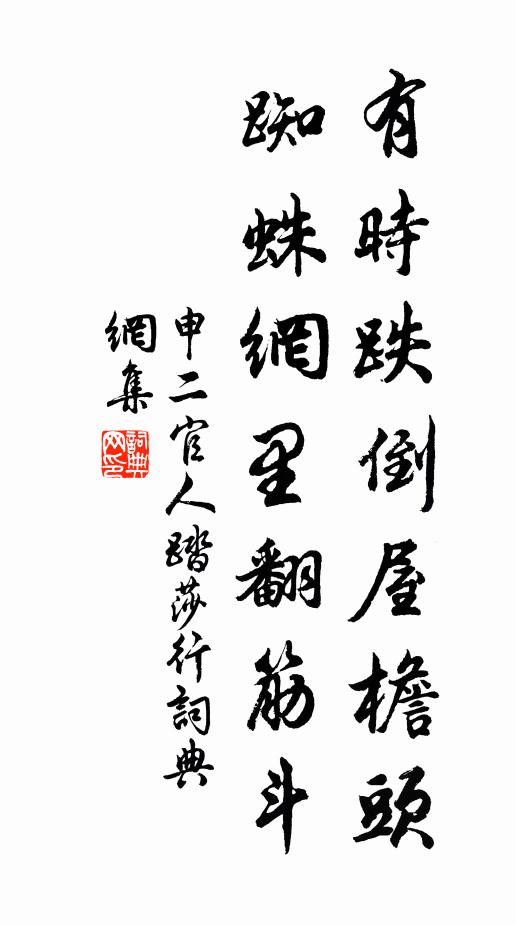 有時跌倒屋檐頭
蜘蛛網里翻筋斗
申二官人踏莎行詞典
網集
詞典網印